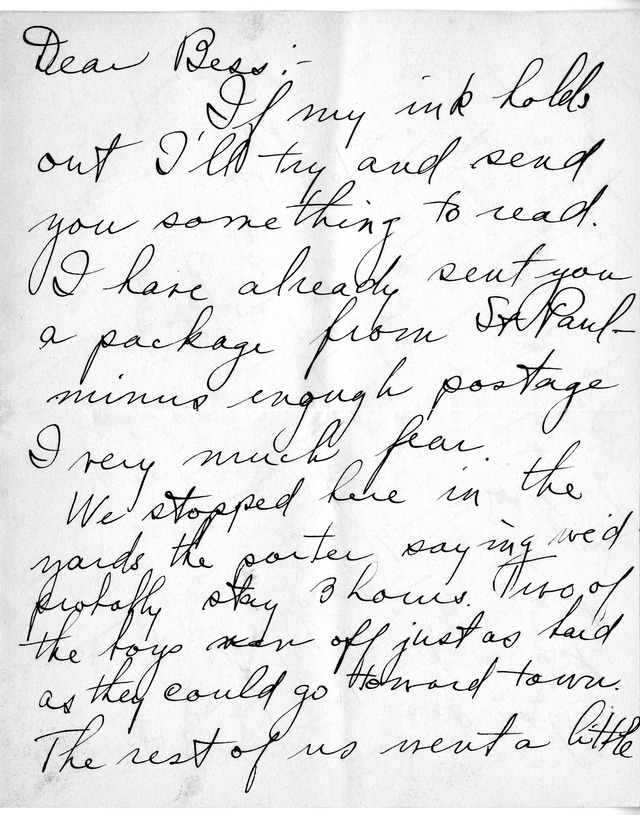 Dear Bess:-
If my ink holds
out I'll try and send
you something to read.
I have already sent you
a package from St Paul-
minus enough postage
I very much fear.
We stopped here in the
yards the porter saying we'd
probably stay 3 hours. Two of
the boys ran off just as hard
as they could go toward town.
The rest of us went a little